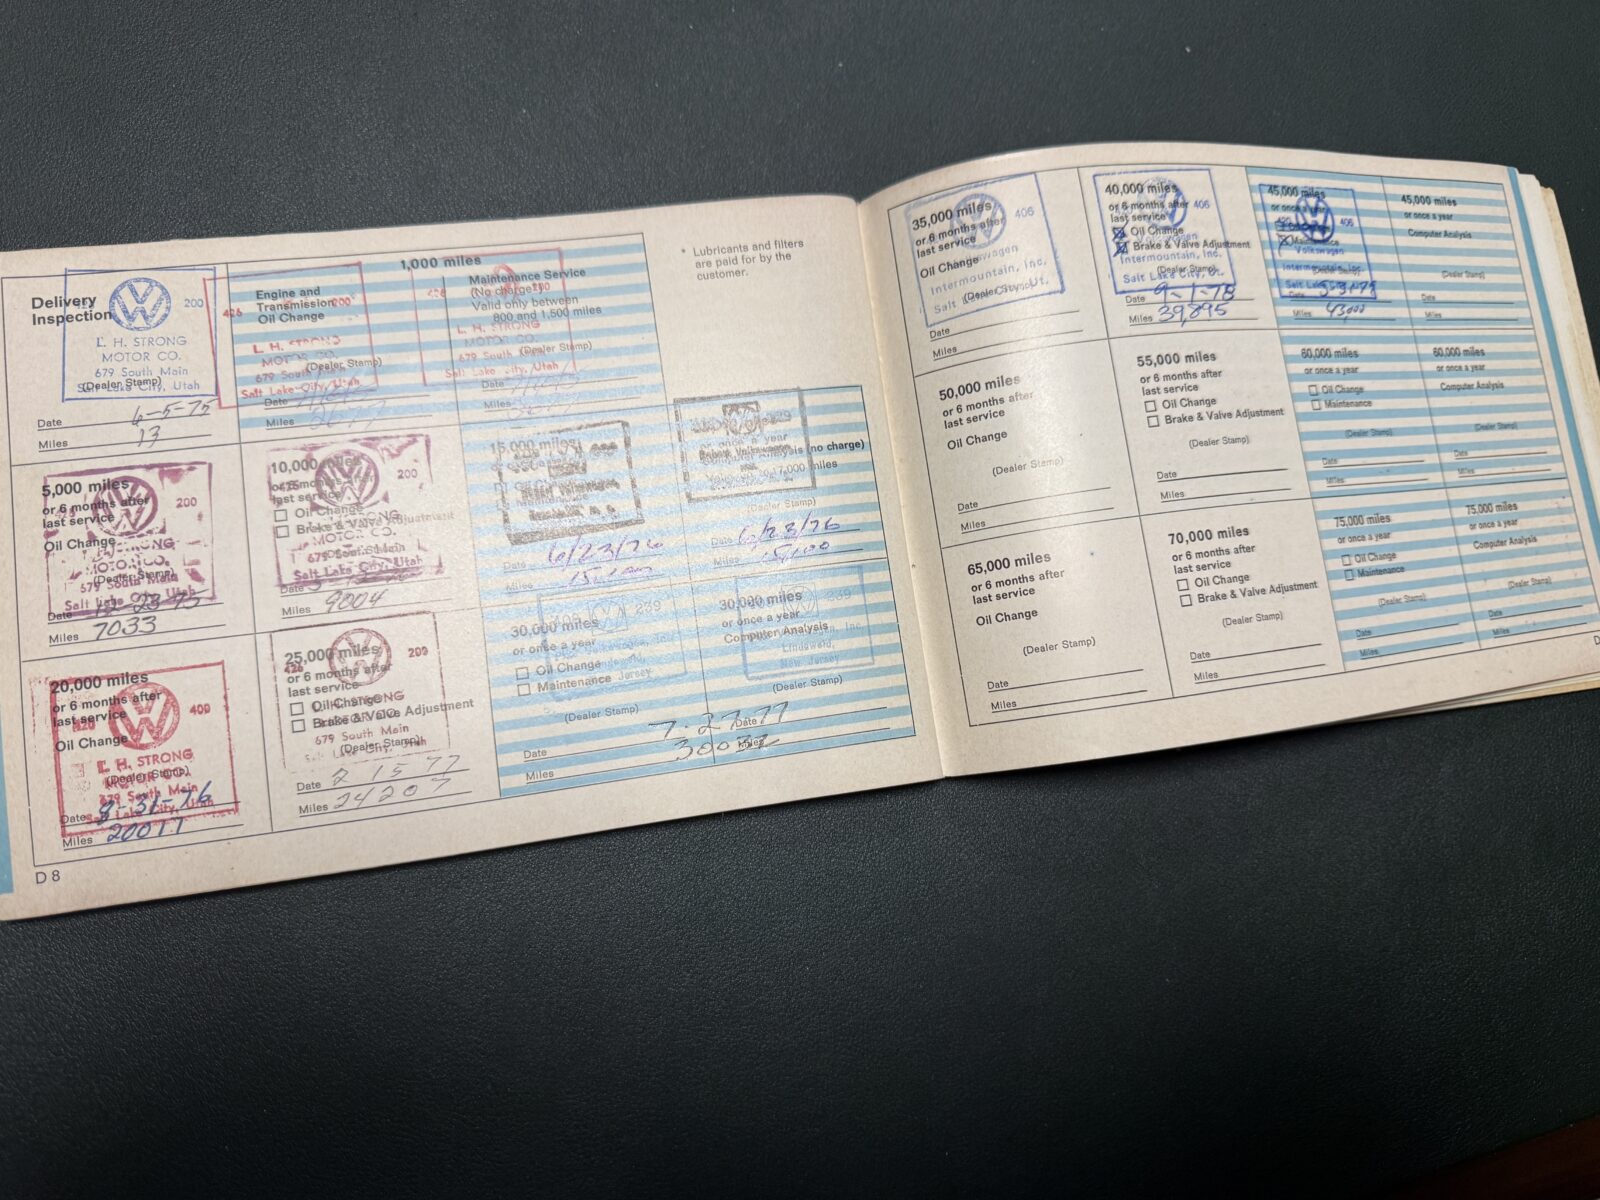 1,000 miles
* Lubricants and filters
are paid for by the
customer.
Delivery
Inspection
200
L. H. STRONG
MOTOR CO.
679 South Main
Salt Lake City, Utah
(Dealer Stamp)
Date 6-5-75
Miles 13
Engine and
Transmission
Oil Change
426
200
L. H. STRONG
MOTOR CO.
(Dealer Stamp)
679 South
Salt Lake City, Utah
Date
Miles
Maintenance Service
(No charge)
Valid only between
800 and 1,500 miles
426
200
L. H. STRONG
MOTOR CO.
(Dealer Stamp)
679 South
Salt Lake City, Utah
Date
Miles
5,000 miles
or 6 months after
last service
Oil Change
200
MOTOR CO.
(Dealer Stamp)
679 South Main
Salt Lake City, Utah
Date 12-23-75
Miles 7033
10,000 miles
or 6 months after
last service
200
Oil Change
Brake & Valve Adjustment
MOTOR CO.
679 South Main
Salt Lake City, Utah
Date
Miles 9004
15,000 miles
or once a year
Date 6/23/76
Miles
or once a year
Computer Analysis (no charge)
17,000 miles
(Dealer Stamp)
Date 6/23/76
Miles
20,000 miles
or 6 months after
last service
Oil Change
426
400
L. H. STRONG
MOTOR CO.
(Dealer Stamp)
679 South Main
Salt Lake City, Utah
Date 8-31-76
Miles 20017
25,000 miles
or 6 months after
last service
426
200
Oil Change
Brake & Valve Adjustment
679 South Main
(Dealer Stamp)
Date 2 15 77
Miles 24207
30,000 miles
or once a year
239
Oil Change
Maintenance
Jersey
(Dealer Stamp)
Date
Miles
30,000 miles
or once a year
Computer Analysis
239
Lindenwold,
New Jersey
(Dealer Stamp)
Date 7-27-77
Miles 30032
D 8
35,000 miles
or 6 months after
last service
Oil Change
406
Intermountain, Inc.
Salt Lake City, Ut.
(Dealer Stamp)
Date
Miles
40,000 miles
or 6 months after
last service
406
Oil Change
Brake & Valve Adjustment
Intermountain, Inc.
(Dealer Stamp)
Salt Lake City, Ut.
Date 9-1-78
Miles 39,895
45,000 miles
or once a year
406
Maintenance
Volkswagen
Intermountain, Inc.
Date
Miles 43,000
45,000 miles
or once a year
Computer Analysis
(Dealer Stamp)
Date
Miles
50,000 miles
or 6 months after
last service
Oil Change
(Dealer Stamp)
Date
Miles
55,000 miles
or 6 months after
last service
Oil Change
Brake & Valve Adjustment
(Dealer Stamp)
Date
Miles
60,000 miles
or once a year
Oil Change
Maintenance
(Dealer Stamp)
Date
Miles
60,000 miles
or once a year
Computer Analysis
(Dealer Stamp)
Date
Miles
65,000 miles
or 6 months after
last service
Oil Change
(Dealer Stamp)
Date
Miles
70,000 miles
or 6 months after
last service
Oil Change
Brake & Valve Adjustment
(Dealer Stamp)
Date
Miles
75,000 miles
or once a year
Oil Change
Maintenance
(Dealer Stamp)
Date
Miles
75,000 miles
or once a year
Computer Analysis
(Dealer Stamp)
Date
Miles